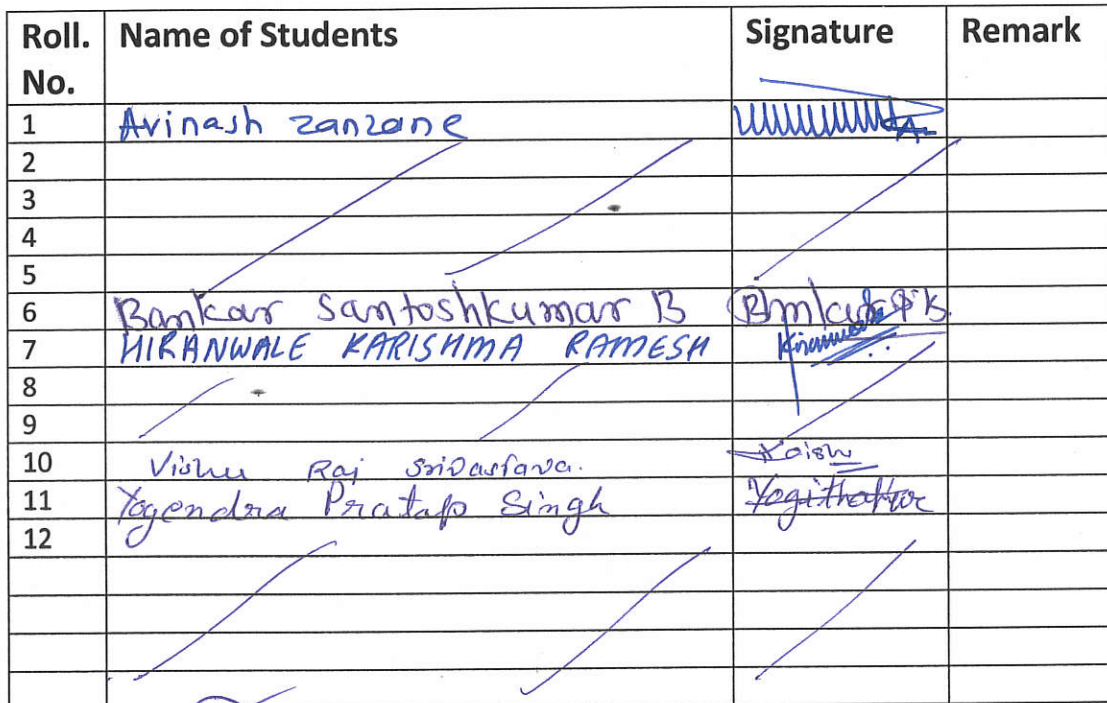 Roll. No. Name of Students Signature Remark
1 Avinash zanzane
2
3
4
5
6 Bankar Santoshkumar B
7 HIRANWALE KARISHMA RAMESH
8
9
10 Vishu Raj Srivastava.
11 Yogendra Pratap Singh
12